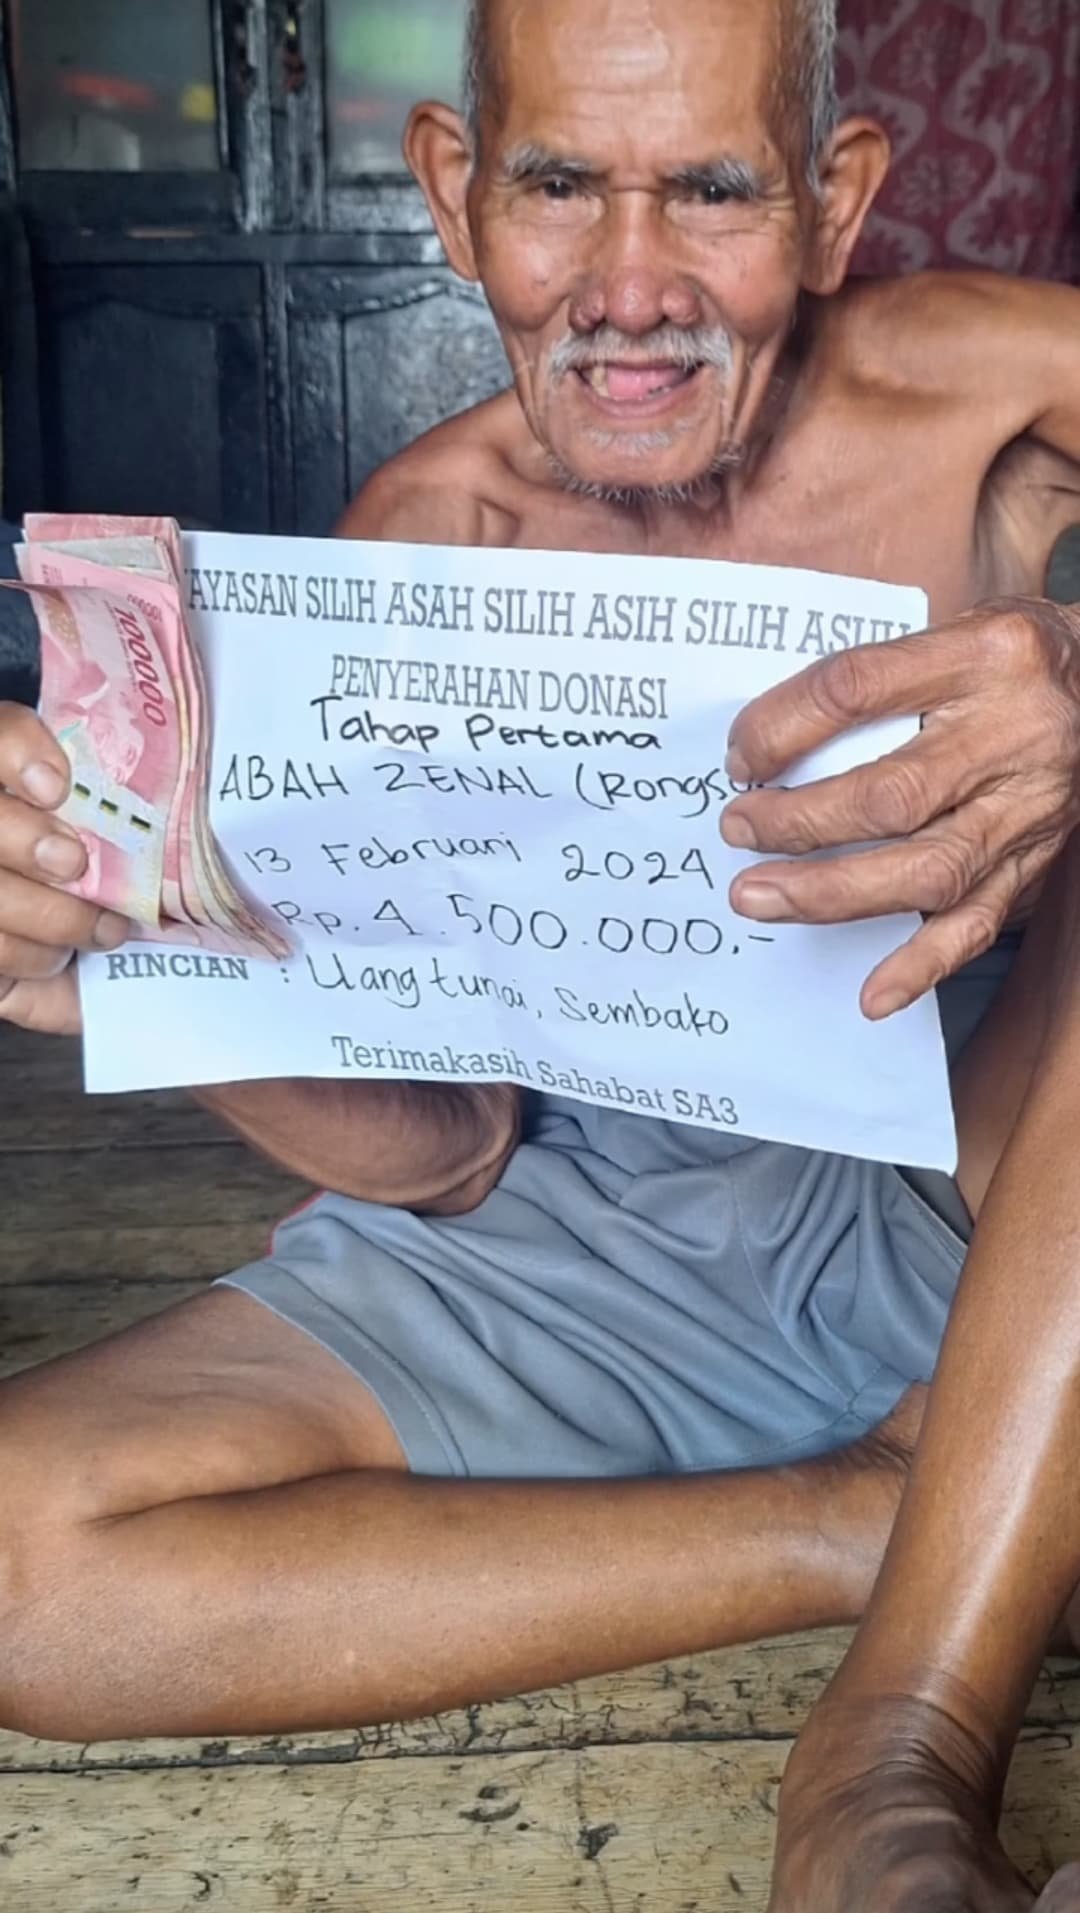 YAYASAN SILIH ASAH SILIH ASIH SILIH ASUH
PENYERAHAN DONASI
Tahap Pertama
ABAH ZENAL (Rongs
13 Februari 2024
Rp. 4.500.000,-
RINCIAN : Uang tunai, Sembako
Terimakasih Sahabat SA3
100000